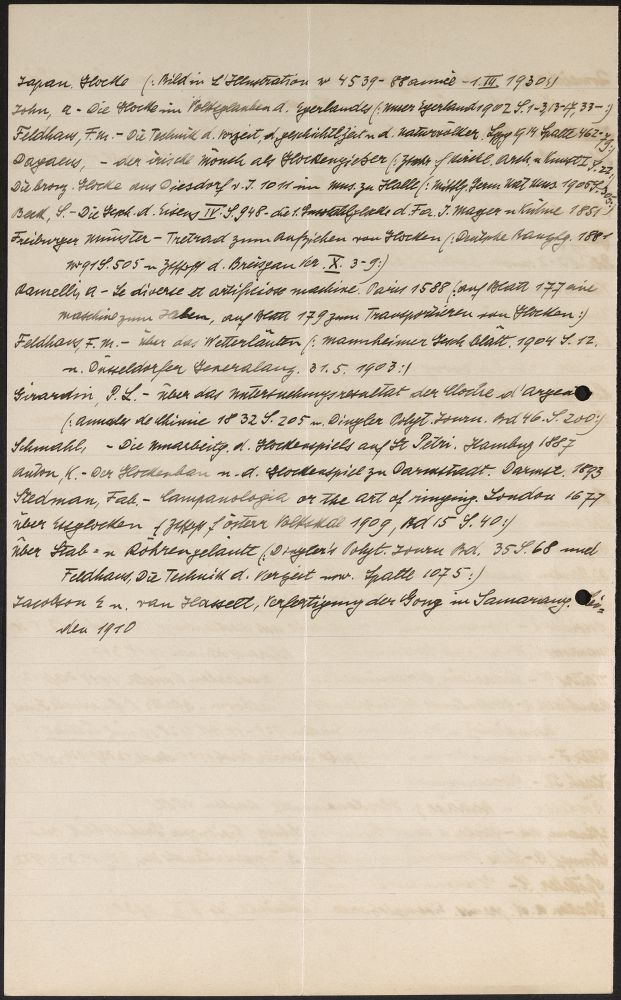 Japan. Glocke (: Bild in L'Illustration № 4539 - 88 année - 1. III. 1930 :)
John, A - Die Glocke im Volksglauben d. Egerlandes (: Unser Egerland 1902 S. 1-3, 13-17, 33- :)
Feldhaus, F. M. - Die Technik d. Vorzeit, d. geschichtl. Zeit u. d. Naturvölker. Lpzg 1914 Spalte 462-
- der irische Mönch als Glockengießer (: Zschr. f. christl. Arch. u. Kunst I S. 22 :)
Die bronz. Glocke aus Diesdorf v. J. 1011 im Mus. zu Halle (: Mittlg. Germ. Nat. Mus. 1905 S.
Beck, L. - Die Gesch. d. Eisens IV. S. 948 - die 1. Gussstahlglocke d. Fa. J. Mayer u Kühne 1851
Freiburger Münster - Tretrad zum Aufziehen von Glocken (: Deutsche Bauztg. 1881
№ 91 S. 505 u Zschft d. Breisgau Ver. X. 3-9 :)
Ramelli, A - Le diverse et artificiose machine. Paris 1588 (: auf Blatt 177 eine
Maschine zum Heben, auf Blatt 179 zum Transportieren von Glocken :)
Feldhaus, F. M. - über das Wetterläuten (: Mannheimer Gesch. Blätt. 1904 S. 12.
u. Düsseldorfer Generalanz. 31. 5. 1903 :)
Girardin, P. L. - über das Untersuchungsresultat der Cloche d'argent
(: Annales de Chimie 1832 S. 205 u. Dingler Polyt. Journ. Bd 46. S. 200 :)
Schmahl, - Die Umarbeitg. d. Glockenspiels auf St Petri. Hamburg 1887
Anton, K. - Der Glockenbau u. d. Glockenspiel zu Darmstadt. Darmst. 1893
Stedman, Fab. - Campanologia or the art of ringing. London 1677
über Essglocken (: Zschft f. österr Volkskde 1909, Bd 15 S. 40 :)
über Stab- u Röhrengeläute (: Dingler's Polyt. Journ Bd. 35 S. 68 und
Feldhaus, Die Technik d. Vorzeit usw. Spalte 1075 :)
Jacobson E u. van Hasselt, Verfertigung der Gong in Samarang. Lei=
den 1910